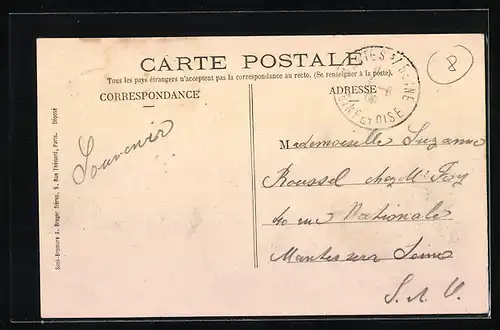 CARTE POSTALE
Tous les pays étrangers n'acceptent pas la correspondance au recto. (Se renseigner à la poste).
CORRESPONDANCE
ADRESSE
8
SEINE
SEINE ET OISE
Souvenir
Mademoiselle Suzanne
Roussel chez Mr
40 rue Nationale
Mantes sur Seine
S. et O.
5, Rue Thénard, Paris. Déposé